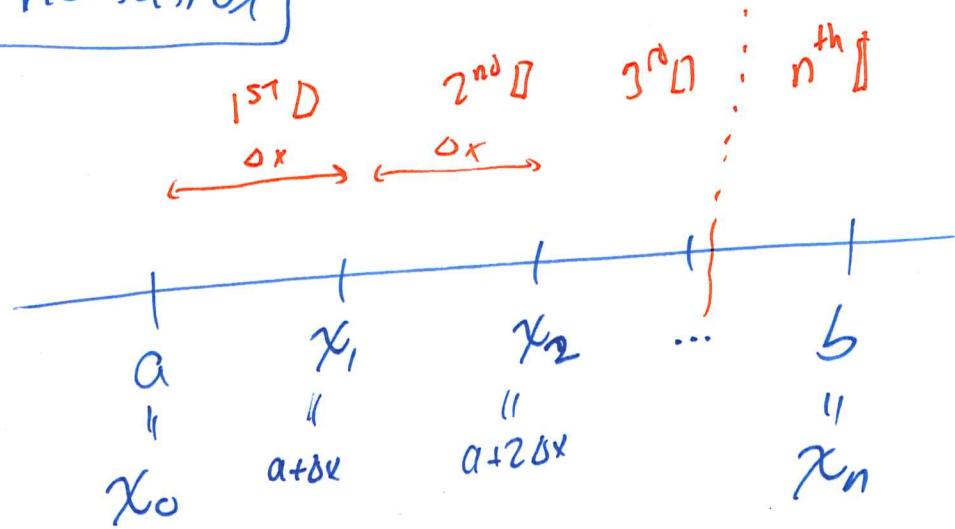 1ST ▯ 2nd ▯ 3rd ▯ nth ▯
Δx Δx
a x₁ x₂ ... b
" " " "
x₀ a+Δx a+2Δx xₙ